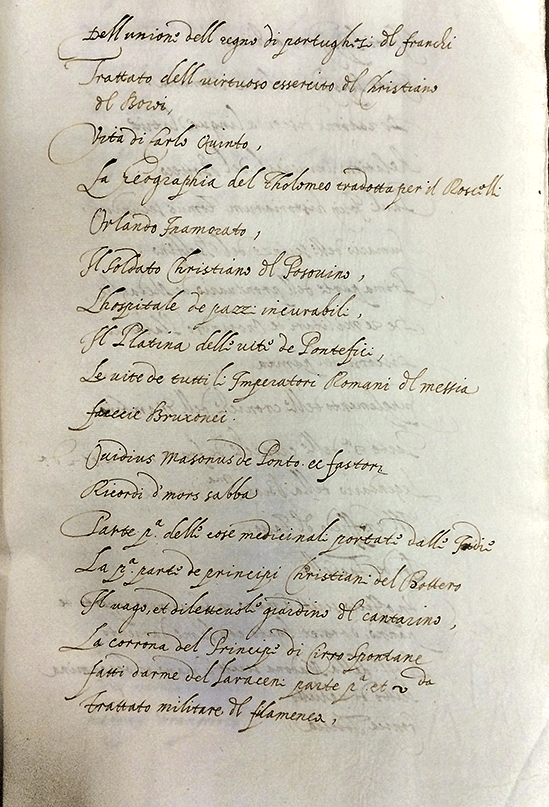 Dell'unione dell regno di portughesi del franchi
Trattato dell virtuoso essercito del Christiano
del Bozi,
Vita di Carlo Quinto,
La Geographia del Tholomeo tradotta per il Roscelli
Orlando Inamorato,
Il Soldato Christiano del Posovino,
L'hospitale de pazzi incurabili,
Il Platina delle vite de Pontefici,
Le vite de tutti li Imperatori Romani del messia
faccie Bruxonei.
Ovidius Masonus de Ponto et fastori
Ricordi d'mors sabba
Parte pa. delle cose medicinali portate dalle Indie
La pa. parte de principi Christiani del Bottero
Il vago, et dilettevole giardino del cantarino,
La corrona del Principe di Cirro Spontane
fatti darme del Saraceni parte pa. et 2 da
Trattato militare del filamenea,